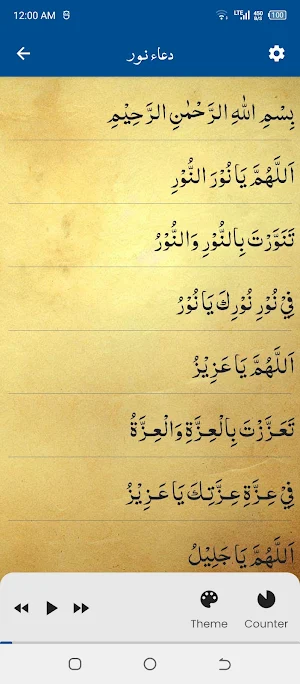 12:00 AM LTE 450 B/s 100
دعاء نور
بِسْمِ اللهِ الرَّحْمٰنِ الرَّحِيْمِ
اَللّٰهُمَّ يَا نُوْرَ النُّوْرِ
تَنَوَّرْتَ بِالنُّوْرِ وَالنُّوْرُ
فِيْ نُوْرِ نُوْرِكَ يَا نُوْرُ
اَللّٰهُمَّ يَا عَزِيْزُ
تَعَزَّزْتَ بِالْعِزَّةِ وَالْعِزَّةُ
فِيْ عِزَّةِ عِزَّتِكَ يَا عَزِيْزُ
اَللّٰهُمَّ يَا جَلِيْلُ
Theme Counter